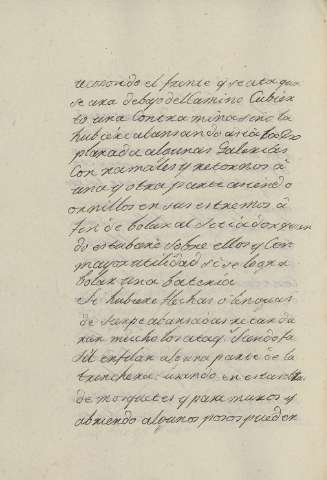 reconondo el frente q̃ se ataque
se ara debajo del Camino Cubier
to una Contra mina si no la
hubiere abansando acia
para da algunas Galerias
Con ramales y retornos â
una y otra parte aciendo
ornillos en sus estremos â
fin de bolar al Sitiador quan
do estubiere sobre ellos y Con
mayor utilidad si se logra
bolar una bateria
Si hubiere flechas o lenguas
de sierpe abansadas retarda
ran mucho los ataq.s Siendo fa
sil enfilar alguna parte de la
trinchera usando en estas
de mosquetes y para muros y
abriendo algunos posos pueden